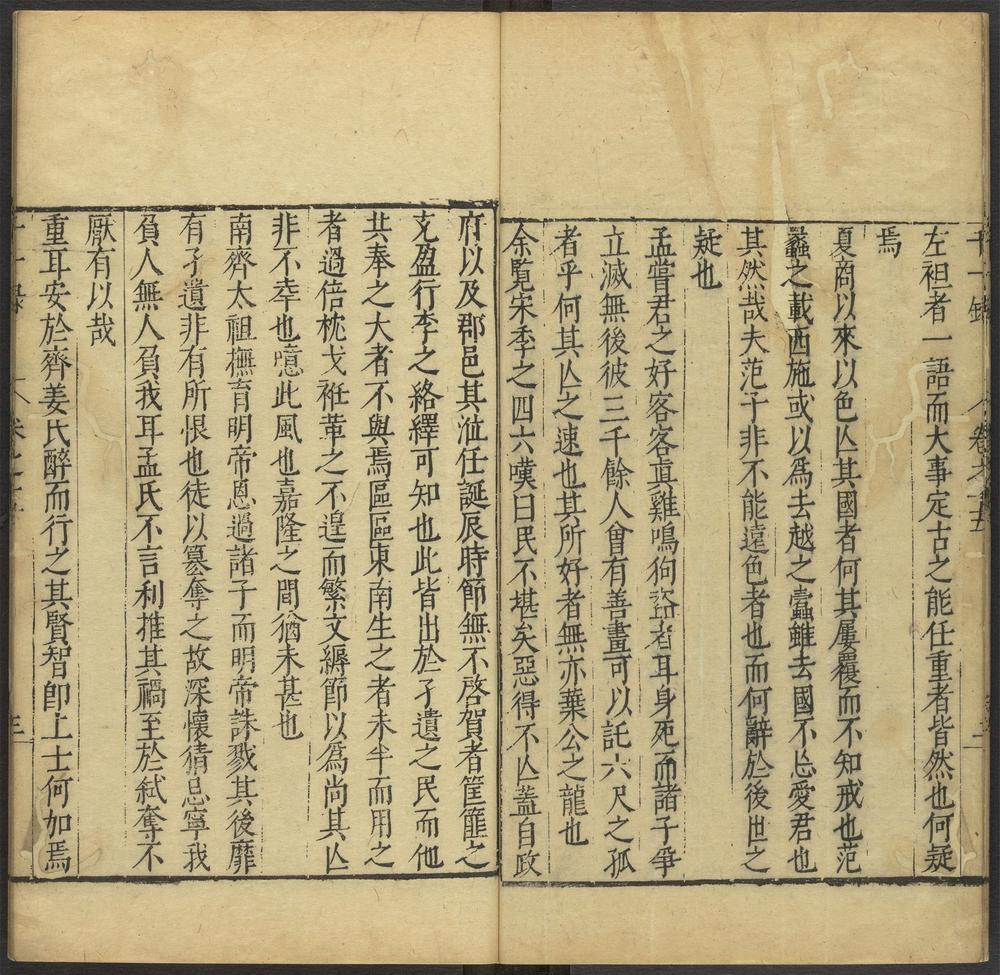 左袒者一語而大事定古之能任重者皆然也何疑
焉
夏商以來以色亾其國者何其屢覆而不知戒也范
蠡之載西施或以爲去越之蠹雖去國不忘愛君也
其然哉夫范子非不能遠色者也而何辭於後世之
疑也
孟嘗君之好客客眞雞鳴狗盜者耳身死而諸子爭
立滅無後彼三千餘人曾有善畫可以託六尺之孤
者乎何其亾之速也其所好者無亦葉公之龍也
余覧宋季之四六嘆曰民不堪矣惡得不亾蓋自政
府以及郡邑其涖任誕辰時節無不啓賀者筐篚之
充盈行李之絡繹可知也此皆出於孑遺之民而他
共奉之大者不與焉區區東南生之者未半而用之
者過倍枕戈袵革之不遑而繁文縟節以爲尚其亾
非不幸也噫此風也嘉隆之間猶未甚也
南齊太祖撫育明帝恩過諸子而明帝誅戮其後靡
有孑遺非有所恨也徒以簒奪之故深懷猜忌寧我
負人無人負我耳孟氏不言利推其禍至於弒奪不
厭有以哉
重耳安於齊姜氏醉而行之其賢智卽上士何如焉